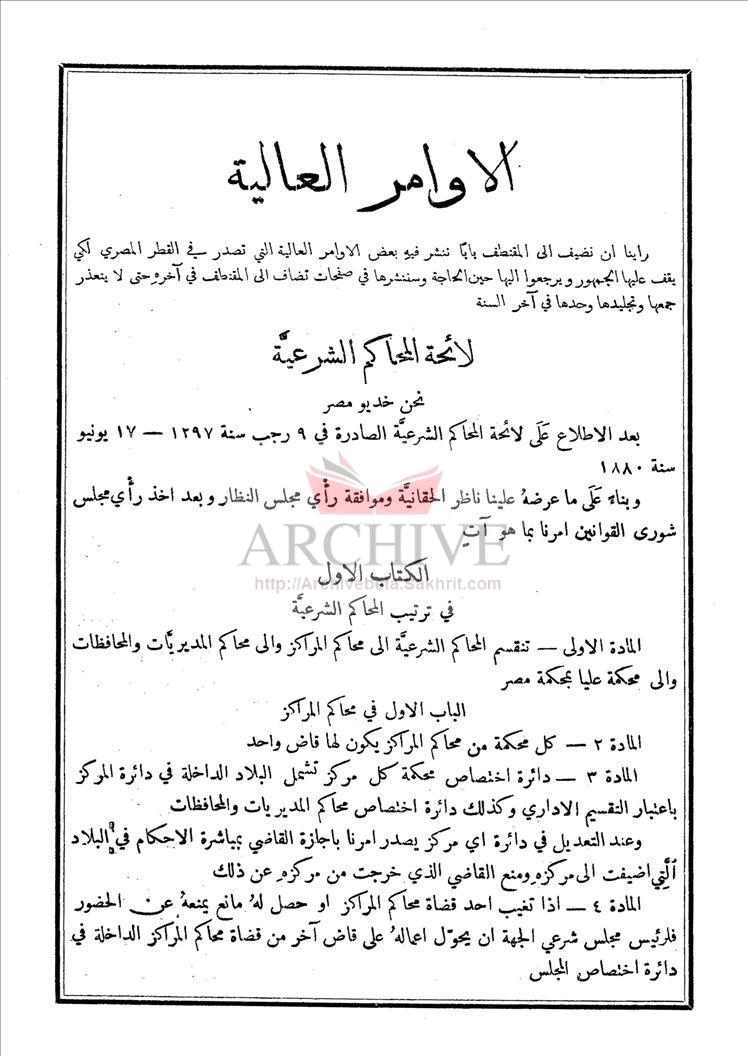 الاوامر العالية
راينا ان نضيف الى المقتطف بابًا ننشر فيهِ بعض الاوامر العالية التي تصدر في القطر المصري لكي
يقف عليها الجمهور ويرجعوا اليها حين الحاجة وسننشرها في صفحات تضاف الى المقتطف في آخرهِ حتى لا يتعذر
جمعها وتجليدها وحدها في آخر السنة
لائحة المحاكم الشرعيَّة
نحن خديو مصر
بعد الاطلاع عَلَى لائحة المحاكم الشرعيَّة الصادرة في ٩ رجب سنة ١٢٩٧ — ١٧ يونيو
سنة ١٨٨٠
وبناءً عَلَى ما عرضهُ علينا ناظر الحقانيَّة وموافقة رأْي مجلس النظار وبعد اخذ رأْي مجلس
شورى القوانين امرنا بما هو آتٍ
ARCHIVE
الكتاب الاول
http://Archivebeta.Sakhrit.com
في ترتيب المحاكم الشرعيَّة
المادة الاولى — تنقسم المحاكم الشرعيَّة الى محاكم المراكز والى محاكم المديريَّات والمحافظات
والى محكمة عليا بمحكمة مصر
الباب الاول في محاكم المراكز
المادة ٢ — كل محكمة من محاكم المراكز يكون لها قاض واحد
المادة ٣ — دائرة اختصاص محكمة كل مركز تشمل البلاد الداخلة في دائرة المركز
باعتبار التقسيم الاداري وكذلك دائرة اختصاص محاكم المديريات والمحافظات
وعند التعديل في دائرة اي مركز يصدر امرنا باجازة القاضي بمباشرة الاحكام في البلاد
الَّتِي اضيفت الى مركزهِ ومنع القاضي الذي خرجت من مركزهِ عن ذلك
المادة ٤ — اذا تغيب احد قضاة محاكم المراكز او حصل لهُ مانع يمنعهُ عن الحضور
فلرئيس مجلس شرعي الجهة ان يحوّل اعمالهُ على قاض آخر من قضاة محاكم المراكز الداخلة في
دائرة اختصاص المجلس